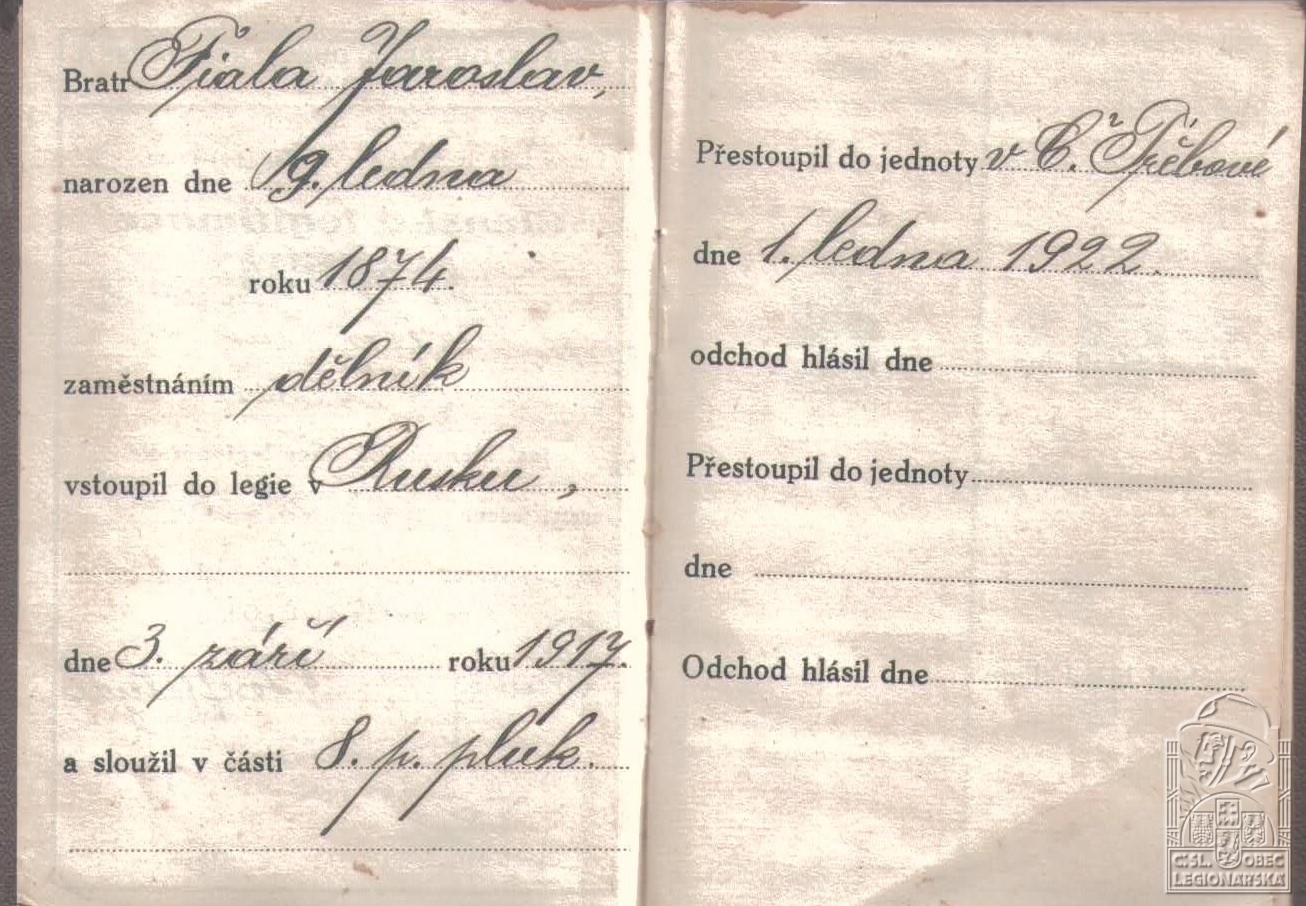 Bratr Fiala Jaroslav,
narozen dne 9. ledna
roku 1874.
zaměstnáním dělník
vstoupil do legie v Rusku,
dne 3. září roku 1917.
a sloužil v části 8. p. pluk.
Přestoupil do jednoty v Č. Třebové
dne 1. ledna 1922.
odchod hlásil dne
Přestoupil do jednoty
dne
Odchod hlásil dne
Č:SL. OBEC
LEGIONÁŘSKÁ